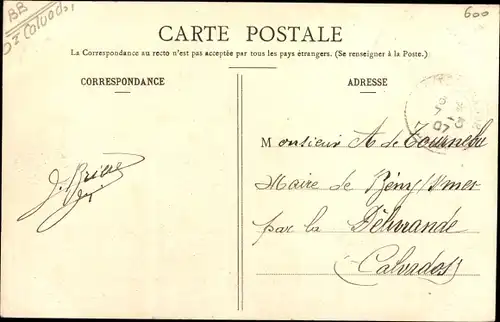 BB
Dt Calvados
600
CARTE POSTALE
La Correspondance au recto n'est pas acceptée par tous les pays étrangers. (Se renseigner à la Poste.)
CORRESPONDANCE
ADRESSE
Monsieur A de Tournebu
Maire de Bény s/mer
par la Délivrande
(Calvados)
J. Brière
07